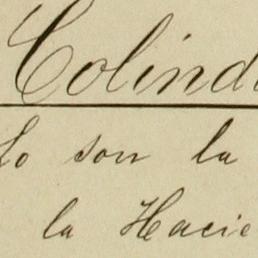 Colind
Lo son la
la Hacie